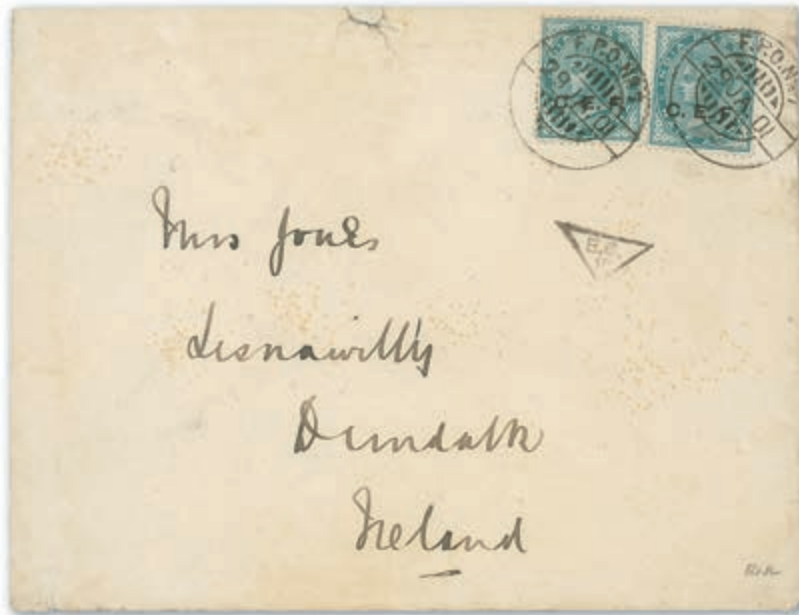 F.P.O.No
29 JA 01
C. E. F.
F.P.O.No
29 JA 01
C. E.
Mrs Jones
Lisnawilly
Dundalk
Ireland